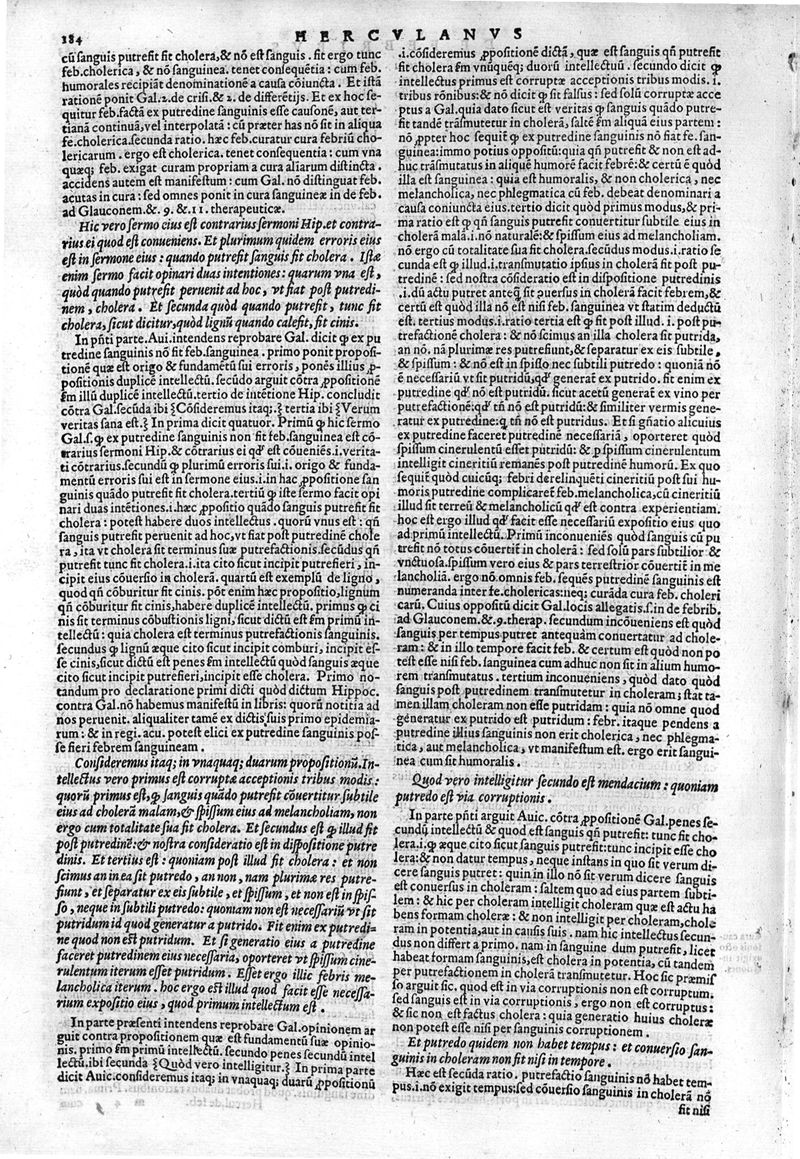 184
HERCVLANVS
cū sanguis putrefit fit cholera,& nō est sanguis . fit ergo tunc
feb.cholerica , & nō sanguinea. tenet consequētia : cum feb.
humorales recipiāt denominationē a causa cōiuncta . Et istā
rationē ponit Gal.2.de crisi.& 2. de differētijs. Et ex hoc se-
quitur feb.factā ex putredine sanguinis esse causonē, aut ter-
tianā continuā,vel interpolatā : cū præter has nō sit in aliqua
fe.cholerica.secunda ratio. hæc feb.curatur cura febriū cho-
lericarum . ergo est cholerica. tenet consequentia : cum vna
quæq; feb. exigat curam propriam a cura aliarum distincta .
accidens autem est manifestum : cum Gal. nō distinguat feb.
acutas in cura : sed omnes ponit in cura sanguineæ in de feb.
ad Glauconem.&. 9. &.11. therapeuticæ.
Hic vero sermo eius est contrarius sermoni Hip.et contra-
rius ei quod est conueniens. Et plurimum quidem erroris eius
est in sermone eius : quando putrefit sanguis fit cholera . Istæ
enim sermo facit opinari duas intentiones : quarum vna est ,
quòd quando putrefit peruenit ad hoc, vt fiat post putredi-
nem , cholera . Et secunda quòd quando putrefit , tunc fit
cholera, sicut dicitur,quòd lignū quando calefit, fit cinis.
In pñti parte.Aui.intendens reprobare Gal. dicit ꝙ ex pu
tredine sanguinis nō fit feb.sanguinea . primo ponit proposi-
tionē quæ est origo & fundamētū sui erroris , ponēs illius ꝓ-
positionis duplicē intellectū. secūdo arguit cōtra ꝓpositionē
ſm illū duplicē intellectū.tertio de intētione Hip. concludit
cōtra Gal.secūda ibi ⁊Cōsideremus itaq;.⁊ tertia ibi ⁊Verum
veritas sana est.⁊ In prima dicit quatuor. Primū ꝙ hic sermo
Gal.s.ꝙ ex putredine sanguinis non fit feb.sanguinea est cō-
trarius sermoni Hip. & cōtrarius ei qđ est cōueniēs .i.verita-
ti cōtrarius.secundū ꝙ plurimū erroris sui.i. origo & funda-
mentū erroris sui est in sermone eius.i.in hac ꝓpositione san
guinis quādo putrefit fit cholera.tertiū ꝙ iste sermo facit opi
nari duas intētiones.i.hæc ꝓpositio quādo sanguis putrefit fit
cholera : potest habere duos intellectus . quorū vnus est : qñ
sanguis putrefit peruenit ad hoc,vt fiat post putredinē chole
ra , ita vt cholera sit terminus suæ putrefactionis.secūdus qñ
putrefit tunc fit cholera.i.ita cito sicut incipit putrefieri , in-
cipit eius cōuersio in cholerā. quartū est exemplū de ligno ,
quod qñ cōburitur fit cinis. pōt enim hæc propositio,lignum
qñ cōburitur fit cinis,habere duplicē intellectū. primus ꝙ ci
nis sit terminus cōbustionis ligni, sicut dictū est ſm primū in-
tellectū : quia cholera est terminus putrefactionis sanguinis.
secundus ꝙ lignū æque cito sicut incipit comburi, incipit es-
se cinis,sicut dictū est penes ſm intellectū quòd sanguis æque
cito sicut incipit putrefieri,incipit esse cholera. Primo no-
tandum pro declaratione primi dicti quòd dictum Hippoc.
contra Gal.nō habemus manifestū in libris: quorū notitia ad
nos peruenit. aliqualiter tamē ex dictis suis primo epidemia-
rum : & in regi. acu. potest elici ex putredine sanguinis pos-
se fieri febrem sanguineam .
Consideremus itaq; in vnaquaq; duarum propositionū.In-
tellectus vero primus est corruptæ acceptionis tribus modis :
quorū primus est,ꝙ sanguis quādo putrefit cōuertitur subtile
eius ad cholerā malam,& spissum eius ad melancholiam, non
ergo cum totalitate sua fit cholera. Et secundus est ꝙ illud fit
post putredinē:& nostra consideratio est in dispositione putre
dinis. Et tertius est : quoniam post illud fit cholera : et non
scimus an in ea sit putredo , an non, nam plurimæ res putre-
fiunt , et separatur ex eis subtile , et spissum , et non est in spis-
so, neque in subtili putredo: quoniam non est necessariū vt sit
putridum id quod generatur a putrido. Fit enim ex putredi-
ne quod non est putridum. Et si generatio eius a putredine
faceret putredinem eius necessaria, oporteret vt spissum cine-
rulentum iterum esset putridum. Esset ergo illic febris me-
lancholica iterum . hoc ergo est illud quod facit esse necessa-
rium expositio eius , quod primum intellectum est .
In parte præsenti intendens reprobare Gal.opinionem ar
guit contra propositionem quæ est fundamentū suæ opinio-
nis. primo ſm primū intellectū. secundo penes secundū intel
lectū.ibi secunda ⁊Quòd vero intelligitur.⁊ In prima parte
dicit Auic.consideremus itaq; in vnaquaq; duarū ꝓpositionū
.i.cōsideremus ꝓpositionē dictā, quæ est sanguis qñ putrefit
fit cholera ſm vnūquēq; duorū intellectuū. secundo dicit ꝙ
intellectus primus est corruptæ acceptionis tribus modis. i.
tribus rōnibus: & nō dicit ꝙ sit falsus : sed solū corruptæ acce
ptus a Gal.quia dato sicut est veritas ꝙ sanguis quādo putre-
fit tandē trāsmutetur in cholerā, saltē ſm aliquā eius partem :
nō ꝓpter hoc sequit̄ ꝙ ex putredine sanguinis nō fiat fe.san-
guinea:immo potius oppositū:quia qñ putrefit & non est ad-
huc trāsmutatus in aliquē humorē facit febrē:& certū ē quòd
illa est sanguinea : quia est humoralis, & non cholerica , nec
melancholica, nec phlegmatica cū feb. debeat denominari a
causa coniuncta eius.tertio dicit quòd primus modus,& pri-
ma ratio est ꝙ qñ sanguis putrefit conuertitur subtile eius in
cholerā malā.i.nō naturalē:& spissum eius ad melancholiam.
nō ergo cū totalitate sua fit cholera.secūdus modus.i.ratio se
cunda est ꝙ illud.i.transmutatio ipsius in cholerā fit post pu-
tredinē : sed nostra cōsideratio est in dispositione putredinis
.i.dū actu putret anteq̄ sit ꝓuersus in cholerā facit febrem,&
certū est quòd illa nō est nisi feb.sanguinea vt statim deductū
est. tertius modus.i.ratio tertia est ꝙ fit post illud. i. post pu-
trefactionē cholera : & nō scimus an illa cholera sit putrida,
an nō. nā plurimæ res putrefiunt,& separatur ex eis subtile ,
& spissum : & nō est in spisso nec subtili putredo : quoniā nō
ē necessariū vt sit putridū,qđ generat̄ ex putrido. fit enim ex
putredine qđ nō est putridū. sicut acetū generat̄ ex vino per
putrefactionē:qđ tñ nō est putridū:& similiter vermis gene-
ratur ex putredine:q tñ nō est putridus. Et si gñatio alicuius
ex putredine faceret putredinē necessariā , oporteret quòd
spissum cinerulentū esset putridū: & p spissum cinerulentum
intelligit cineritiū remanēs post putredinē humorū. Ex quo
sequit̄ quòd cuicūq; febri derelinqueti cineritiū post sui hu-
moris putredinē complicaret̄ feb.melancholica,cū cineritiū
illud sit terreū & melancholicū qđ est contra experientiam.
hoc est ergo illud qđ facit esse necessariū expositio eius quo
ad primū intellectū. Primū inconueniēs quòd sanguis cū pu
trefit nō totus cōuertit̄ in cholerā : sed solū pars subtilior &
vnctuosa.spissum vero eius & pars terrestrior cōuertit̄ in me
lancholiā. ergo nō omnis feb. sequēs putredinē sanguinis est
numeranda inter fe.cholericas:neq; curāda cura feb. choleri
carū. Cuius oppositū dicit Gal.locis allegatis.s.in de febrib.
ad Glauconem.&.9.therap. secundum incōueniens est quòd
sanguis per tempus putret antequàm conuertatur ad chole-
ram : & in illo tempore facit feb. & certum est quòd non po
test esse nisi feb.sanguinea cum adhuc non sit in alium humo-
rem transmutatus . tertium inconueniens , quòd dato quòd
sanguis post putredinem transmutetur in choleram; stat ta-
men illam choleram non esse putridam : quia nō omne quod
generatur ex putrido est putridum : febr. itaque pendens a
putredine illius sanguinis non erit cholerica, nec phlegma-
tica, aut melancholica, vt manifestum est. ergo erit sangui-
nea cum sit humoralis .
Quod vero intelligitur secundo est mendacium : quoniam
putredo est via corruptionis .
In parte pñti arguit Auic. cōtra ꝓpositionē Gal.penes se-
cundū intellectū & quod est sanguis qñ putrefit: tunc fit cho-
lera.i.ꝙ æque cito sicut sanguis putrefit:tunc incipit esse cho
lera:& non datur tempus, neque instans in quo sit verum di-
cere sanguis putret : quin in illo nō sit verum dicere sanguis
est conuersus in choleram : saltem quo ad eius partem subti-
lem : & hic per choleram intelligit choleram quæ est actu ha
bens formam choleræ : & non intelligit per choleram,chole
ram in potentia,aut in causis suis . nam hic intellectus secun-
dus non differt a primo. nam in sanguine dum putrefit, licet
habeat formam sanguinis,est cholera in potentia, cū tandem
per putrefactionem in cholerā transmutetur. Hoc sic præmis
so arguit sic. quod est in via corruptionis non est corruptum.
sed sanguis est in via corruptionis , ergo non est corruptus :
& sic non est factus cholera : quia generatio huius choleræ
non potest esse nisi per sanguinis corruptionem .
Et putredo quidem non habet tempus : et conuersio san-
guinis in choleram non fit nisi in tempore .
Hæc est secūda ratio . putrefactio sanguinis nō habet tem-
pus.i.nō exigit tempus:sed cōuersio sanguinis in cholerā nō
fit nisi